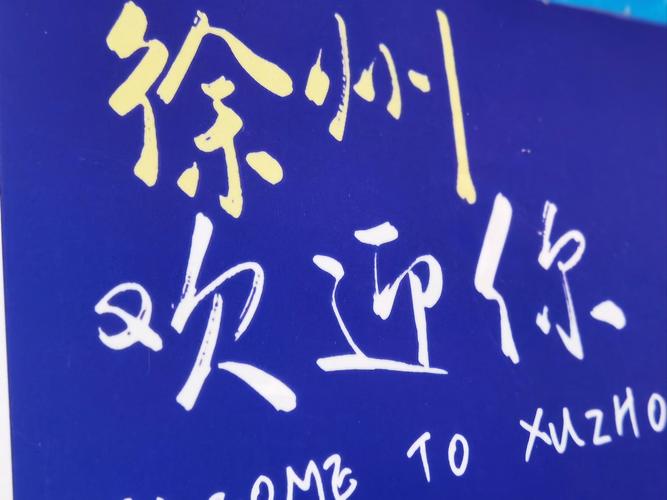 徐州
欢迎你
COME TO XUZHO